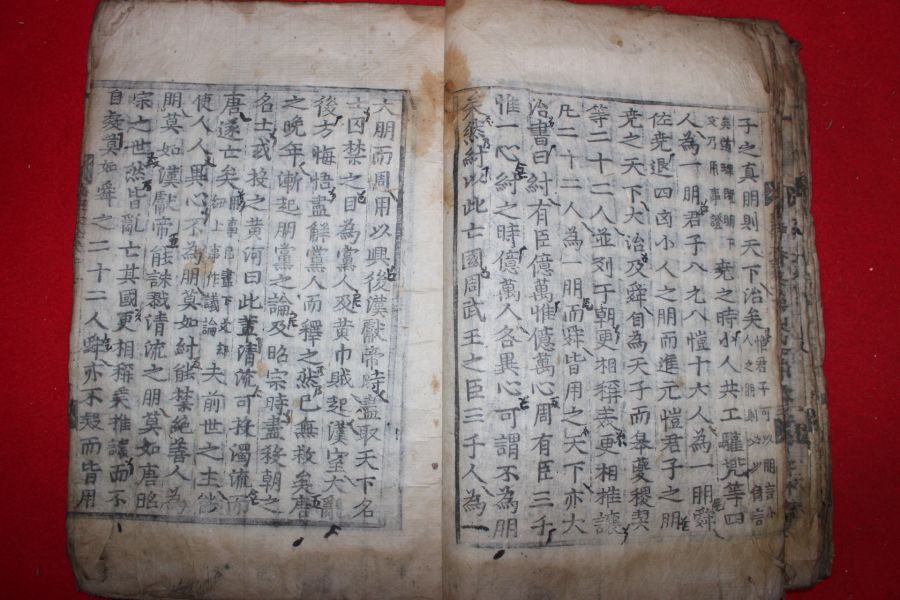 子之真朋則天下治矣
堯之時小人共工驩兜等四
人為一朋君子八元八愷十六人為一朋舜
佐堯退四凶小人之朋而進元愷君子之朋
堯之天下大治及舜自為天子而皐夔稷契
等二十二人並列于朝更相稱美更相推讓
凡二十二人為一朋而舜皆用之天下亦大
治書曰紂有臣億萬惟億萬心周有臣三千
惟一心紂之時億萬人各異心可謂不為朋
矣然紂以此亡國周武王之臣三千人為一
大朋而周用以興後漢獻帝時盡取天下名
士囚禁之目為黨人及黃巾賊起漢室大亂
後方悔悟盡解黨人而釋之然已無救矣唐
之晚年漸起朋黨之論及昭宗時盡殺朝之
名士或投之黃河曰此輩清流可投濁流而
唐遂亡矣 上事作議論 夫前世之主能
使人人異心不為朋莫如紂能禁絕善人為
朋莫如漢獻帝能誅戮清流之朋莫如唐昭
宗之世然皆亂亡其國更相稱美推讓而不
自疑莫如舜之二十二人舜亦不疑而皆用